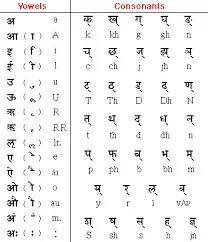 Vowels
अ a
आ (ा) A
इ (ि) i
ई (ी) I
उ (ु) u
ऊ (ू) U
ऋ (ृ) R
ॠ (ॄ) RR
ए (े) e
ऐ (ै) ai
ओ (ो) o
औ (ौ) au
अं (ं) m.
अः (ः) :
Consonants
क् ख् ग् घ् ङ्
k kh g gh n
च् छ् ज् झ् ञ्
c ch j jh n
ट् ठ् ड् ढ् ण्
T Th D Dh N
त् थ् द् ध् न्
t th d dh n
प् फ् ब् भ् म्
p ph b bh m
य् र् ल् व्
y r l v/w
श् ष् स् ह्
S sh s h jn